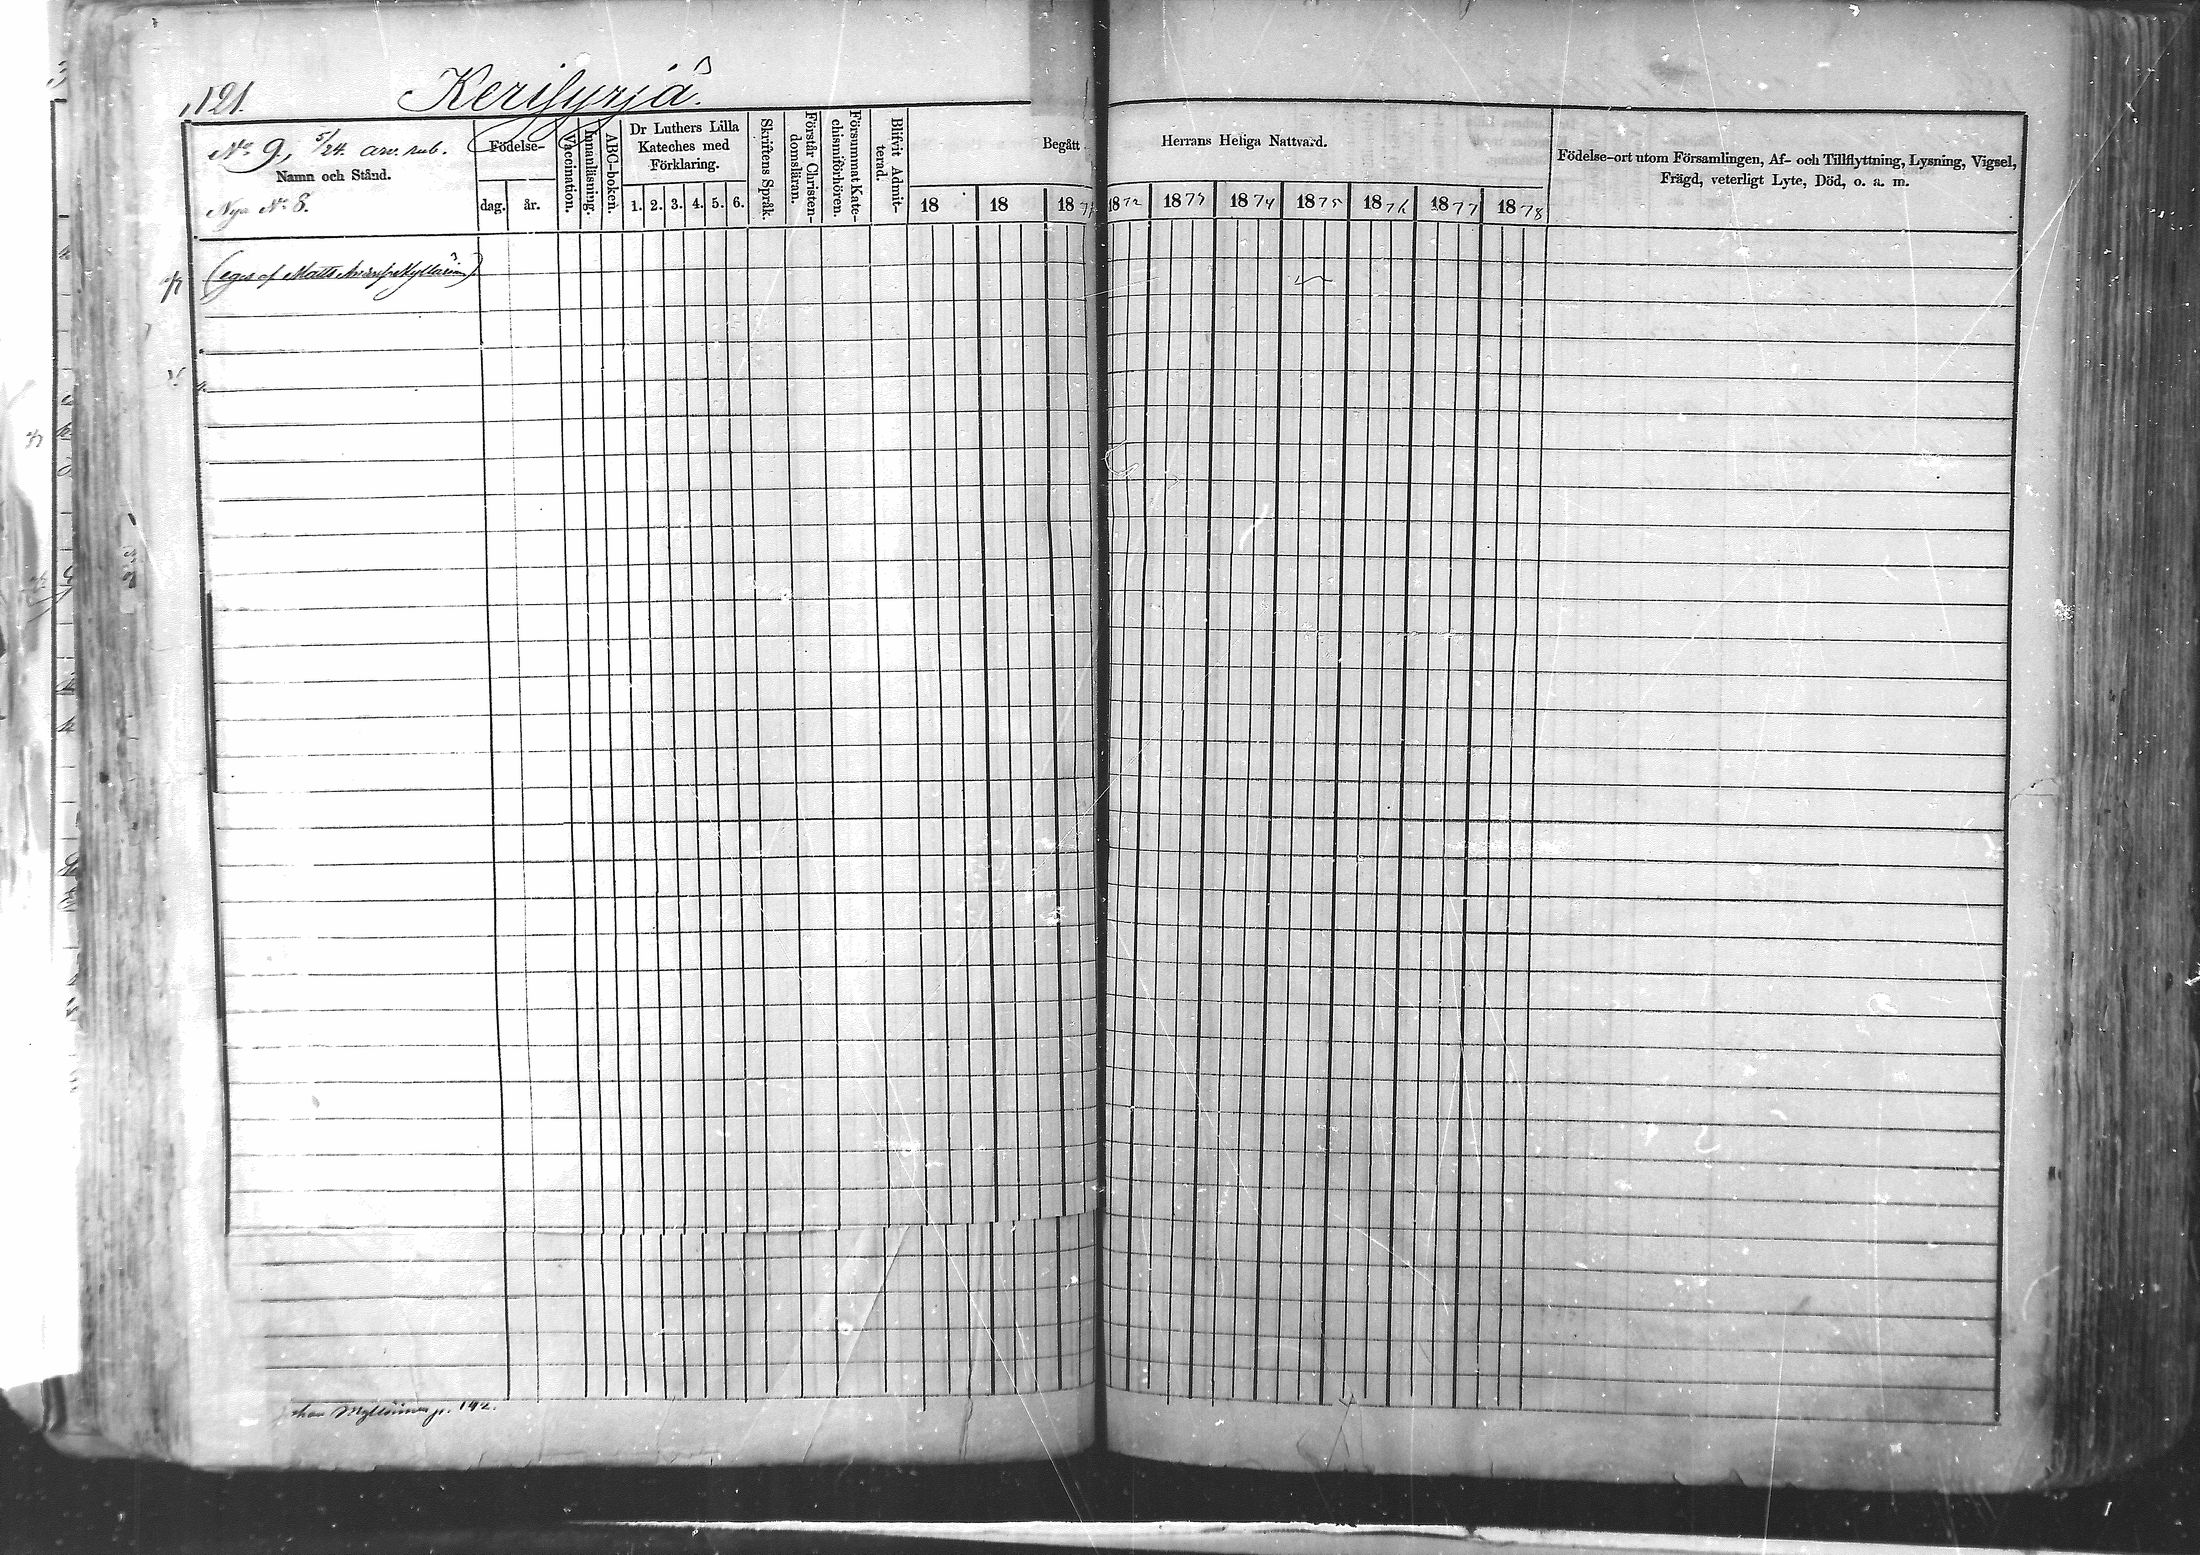 121.
Kerisyrjä
Nº 9., 5/24. arv. rub.
Namn och Stånd.
Nya Nº 8.
Födelse-
dag. år.
Vaccination.
Innanläsning.
ABC-boken.
Dr Luthers Lilla
Kateches med
Förklaring.
1. 2. 3. 4. 5. 6.
Skriftens Språk.
Förstår Christen-
domsläran.
Försummat Kate-
chismiförhören.
Blifvit Admit-
terad.
Begått Herrans Heliga Nattvard.
18 18 1871 1872 1873 1874 1875 1876 1877 1878
Födelse-ort utom Församlingen, Af- och Tillflyttning, Lysning, Vigsel,
Frägd, veterligt Lyte, Död, o. a. m.
(eges af Matts
p. 142.